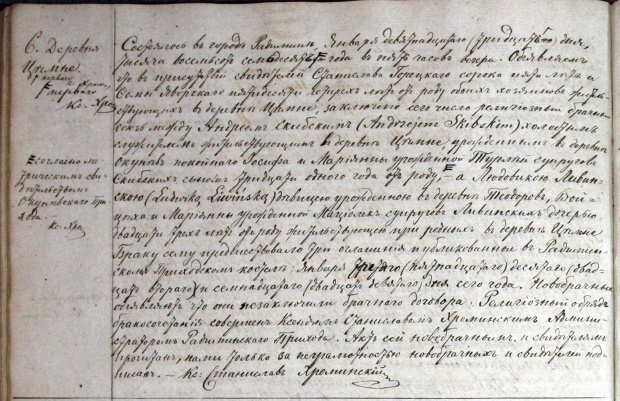 6. Деревня
Цѣпне
первое
перваго
Кс. Хро
согласно ме-
трическимъ сви-
дѣтельствомъ
Окуневскаго При-
хода.
Кс. Хро
Состоялось въ городѣ Радиминѣ, Января девятнадцатаго (тридцать) дня,
тысяча восемьсотъ семьдесятъ года въ пять часовъ вечера. Объявляемъ
что въ присутствіи свидѣтелей Станислава Горецкаго сорока пяти лѣтъ и
Яворскаго пятидесяти четырехъ лѣтъ отъ роду обоихъ хозяиновъ житель-
ствующихъ въ деревнѣ Цѣпне, заключено сего числа религіозный брачный
союзъ между Андреемъ Скибскимъ (Andrzejem Skibskim) холостымъ
жительствующимъ въ деревнѣ Цѣпне, урожденнымъ въ деревнѣ
Окуневъ покойнаго Іосифа и Маріянны урожденной супруговъ
Скибскихъ сыномъ тридцати одного года отъ роду, а Людовикою Ливин-
скою (Ludwiką Liwińską) дѣвицею урожденною въ деревнѣ Теодоровъ, Вой-
цѣха и Маріянны урожденной супруговъ Ливинскихъ дочерью
двадцати трехъ лѣтъ отъ роду жительствующей при родныхъ въ деревнѣ Цѣпне
Браку сему предшествовало три оглашенія публикованныя въ Радимин-
скомъ Приходскомъ костелѣ: Января третьяго (пятнадцатаго) десятаго (двад-
цать втораго) и семнадцатаго (двадцать девятаго) дня сего года. Новобрачные
объявляютъ что они незаключили брачнаго договора. Религіозный обрядъ
бракосочетанія совершенъ Ксендзомъ Станиславомъ Хроминскимъ Админи-
страторомъ Радиминскаго Прихода. Актъ сей новобрачнымъ и свидѣтелямъ
прочитанъ, нами только за неграмотностью новобрачныхъ и свидѣтелей под-
писанъ. — Кс: Станиславъ Хроминскій